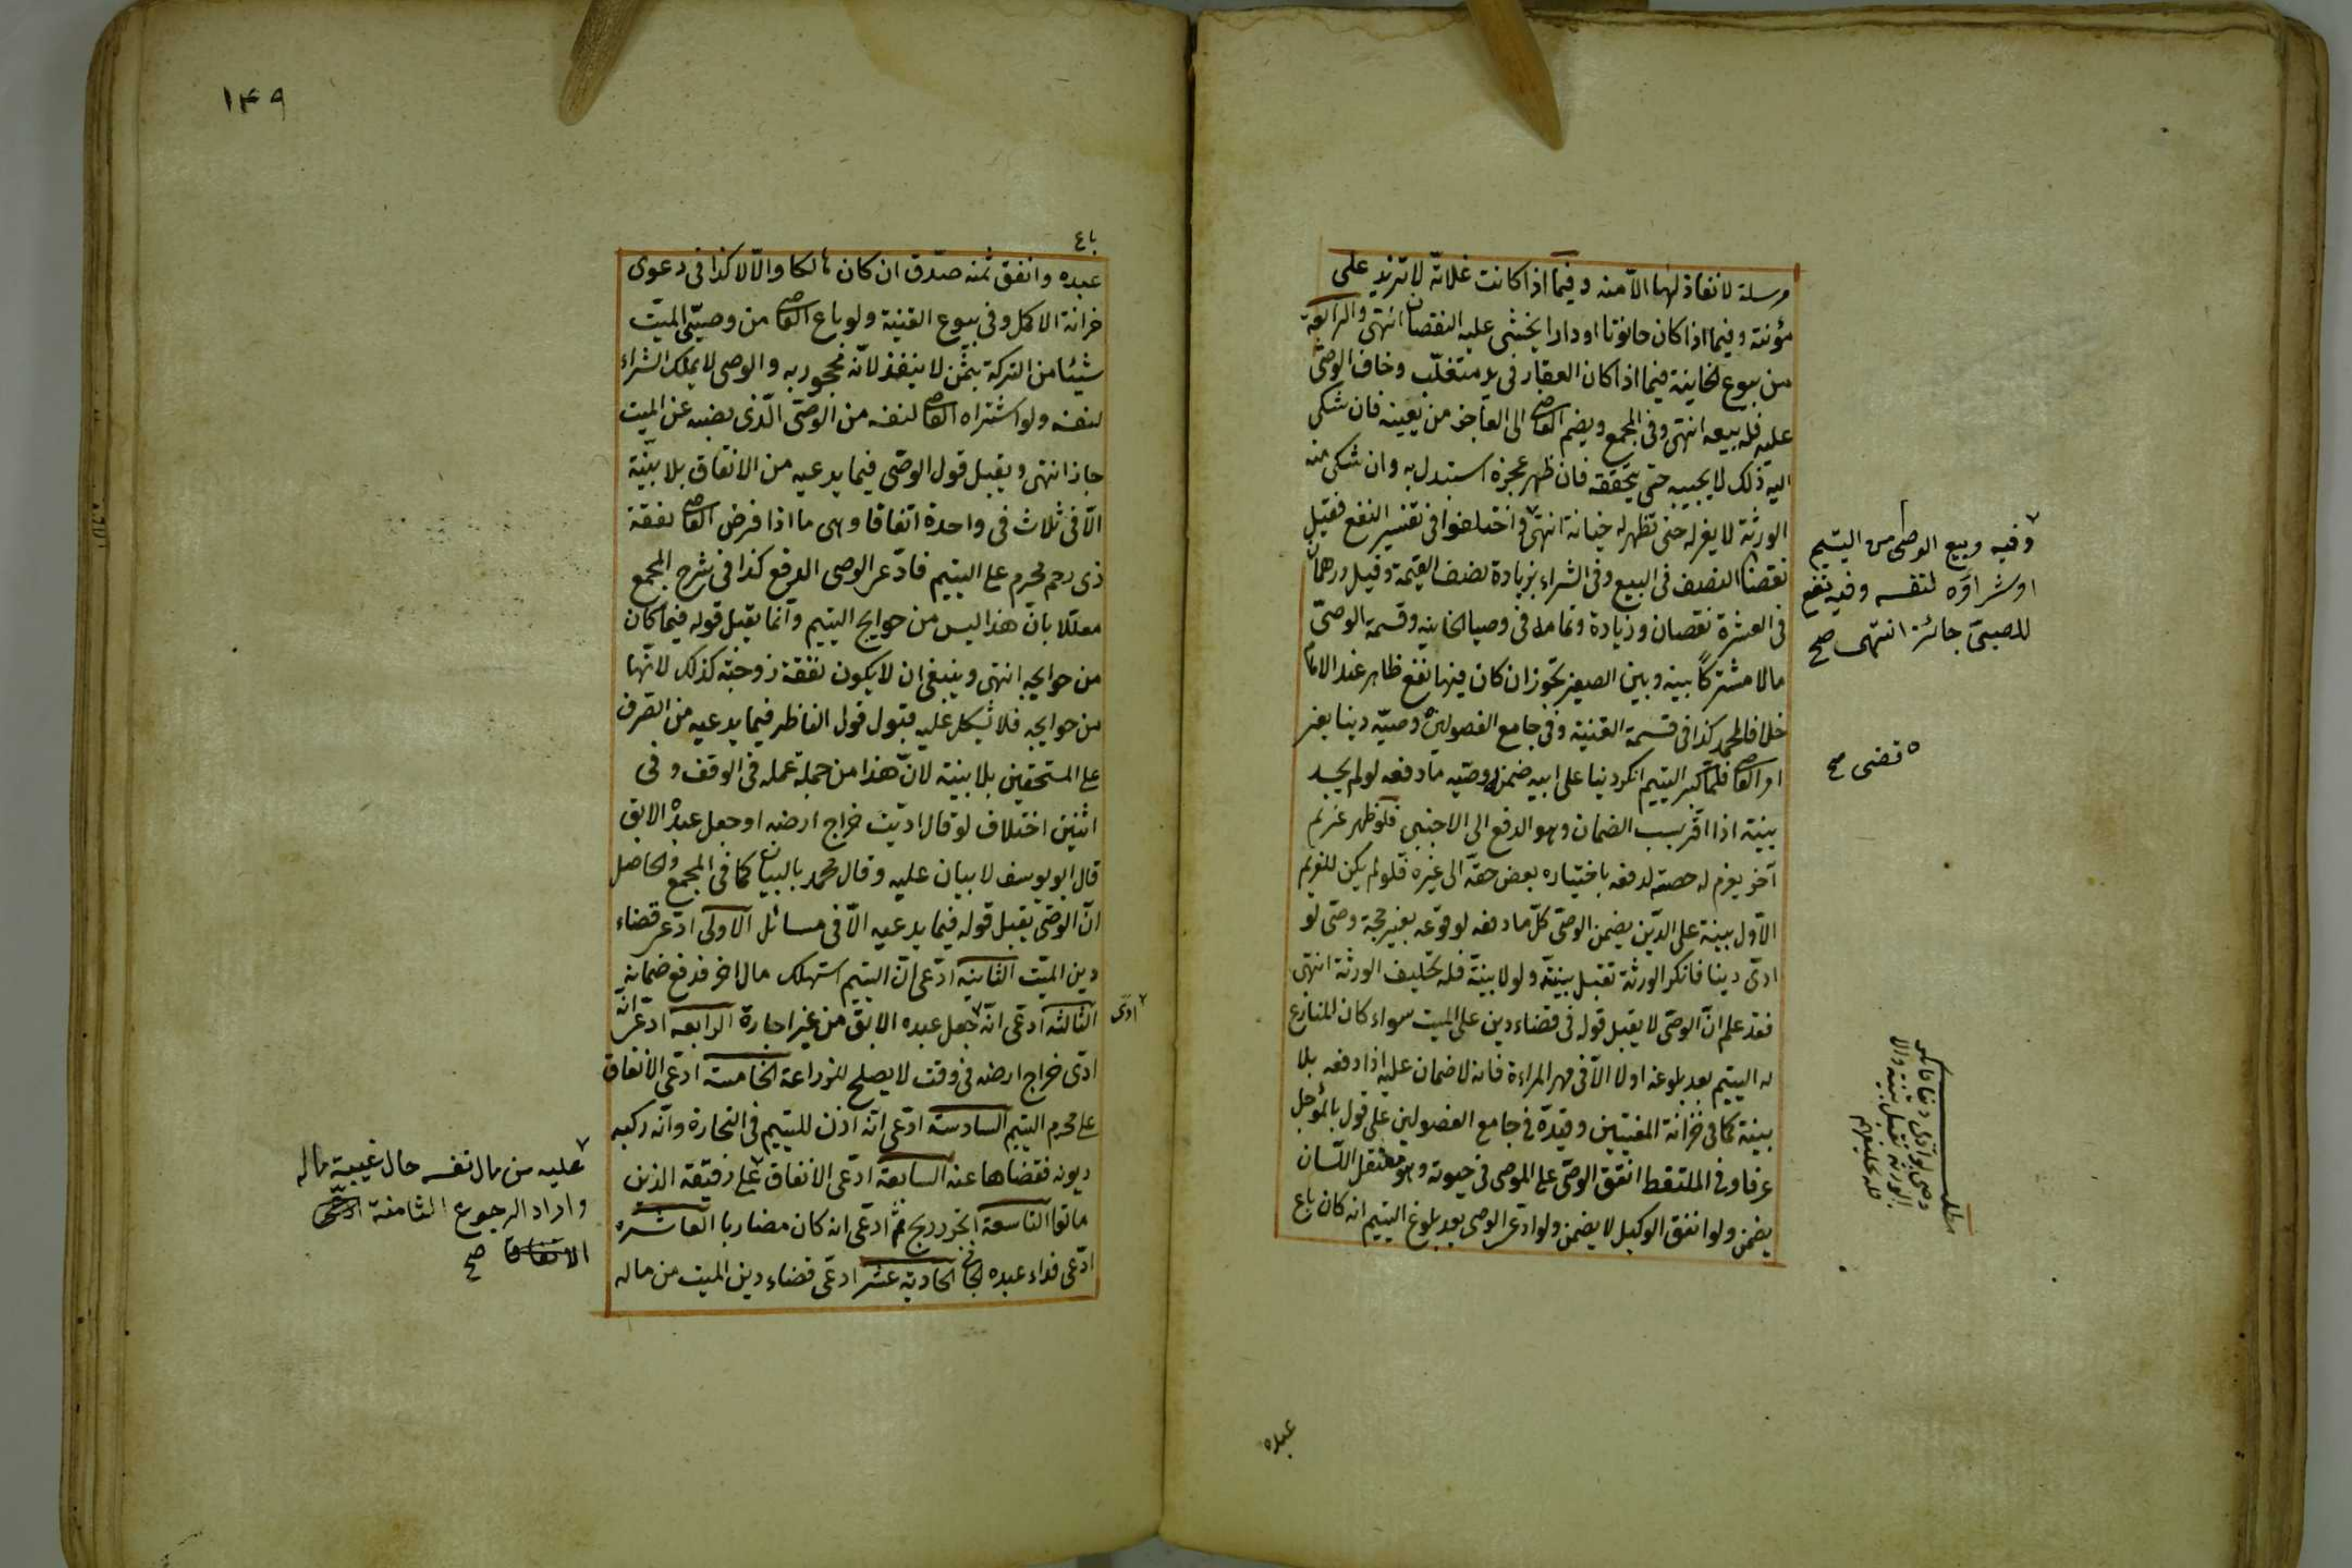 مرسلة لا نفاذ لها الا منه وفيما اذا كانت غلاته لا تزيد على
مؤنته وفيما اذا كان حانوتا او دارا يخشى عليه النقصان انتهى والرابعة
من بيوع الخانية فيما اذا كان العقار فى يد متغلب وخاف الوصى
عليه فله بيعه انتهى وفى المجمع ويضم القاضى الى العاجز من يعينه فان شكى
اليه ذلك لا يجيبه حتى يتحققه فان ظهر عجزه استبدل به وان شكى منه
الورثة لا يعزله حتى تظهر له خيانة انتهى واختلفوا فى تفسير النفع فقيل
نقصان النصف فى البيع وفى الشراء بزيادة نصف القيمة وقيل درهمان
فى العشرة نقصان وزيادة وتمامه فى وصايا الخانيه وقسمة الوصى
مالا مشتركا بينه وبين الصغير تجوز ان كان فيها نفع ظاهر عند الامام
خلافا لمحمد كذا فى قسمة القنية وفى جامع الفصولين وصيه دينا بغير
امر القاضى فلما كبر اليتيم انكر دينا على ابيه ضمن وصيه ما دفعه لو لم يجد
بينة اذا اقر بسبب الضمان وهو الدفع الى الاجنبى فلو ظهر غريم
آخر يغرم له حصته لدفعه باختياره بعض حقه الى غيره فلو لم يكن للغريم
الاول بينة على الدين يضمن الوصى كل ما دفعه لوقوعه بغير حجة وصى لو
ادى دينا فانكر الورثة تقبل بينته ولو لا بينة فله تحليف الورثة انتهى
فقد علم ان الوصى لا يقبل قوله فى قضاء دين على الميت سواء كان المنازع
له اليتيم بعد بلوغه او لا الا فى مهر المراءة فانه لا ضمان عليه اذا دفعه بلا
بينة كما فى خزانة المفتيين وقيده فى جامع الفصولين على قول بالمؤجل
عرفا وفى الملتقط انفق الوصى على الموصى فى حيوته وهو معتقل اللسان
يضمن ولو انفق الوكيل لا يضمن ولو ادعى الوصى بعد بلوغ اليتيم انه كان باع
وفيه وبيع الوصى من اليتيم
او شراؤه لنفسه وفيه نفع
للصبى جائز انتهى صح
قضى صح
مطلب
وصى لو ادى دينا فانكر
الورثة تقبل بينته والا
فله تحليفهم
عبده
١٤٩
باع
عبده وانفق ثمنه صدق ان كان هالكا والا لا كذا فى دعوى
خزانة الاكمل وفى بيوع القنية ولو باع القاضى من وصى الميت
شيئا من التركة بثمن لا ينفذ لانه محجور به والوصى لا يملك الشراء
لنفسه ولو اشتراه القاضى لنفسه من الوصى الذى نصبه عن الميت
جاز انتهى ويقبل قول الوصى فيما يدعيه من الانفاق بلا بينة
الا فى ثلاث فى واحدة اتفاقا وهى ما اذا فرض القاضى نفقة
ذى رحم محرم على اليتيم فادعى الوصى الدفع كذا فى شرح المجمع
معللا بان هذا ليس من حوايج اليتيم وانما يقبل قوله فيما كان
من حوايجه انتهى وينبغى ان لا يكون نفقة زوجته كذلك لانها
من حوايجه فلا تشكل عليه قبول قول الناظر فيما يدعيه من الصرف
على المستحقين بلا بينة لان هذا من جملة عمله فى الوقف وفى
اثنين اختلاف لو قال اديت خراج ارضه او جعل عبده الابق
قال ابو يوسف لا بيان عليه وقال محمد بالبيان كما فى المجمع والحاصل
ان الوصى يقبل قوله فيما يدعيه الا فى مسائل الاولى ادعى قضاء
دين الميت الثانية ادعى ان اليتيم استهلك مال اخر فدفع ضمانه
الثالثه ادعى انه جعل عبده الابق من غير اجارة الرابعه ادعى انه
ادى خراج ارضه فى وقت لا يصلح للزراعة الخامسة ادعى الانفاق
على محرم اليتيم السادسة ادعى انه اذن لليتيم فى التجارة وانه ركبه
ديونه فقضاها عنه السابعة ادعى الانفاق على رقيقه الذين
ماتوا التاسعة اتجر وربح ثم ادعى انه كان مضاربا العاشره
ادعى فداء عبده الجانى الحادية عشر ادعى قضاء دين الميت من ماله
ادى
عليه من مال نفسه حال غيبة ماله
واراد الرجوع الثامنة ادعى
الانفاق صح